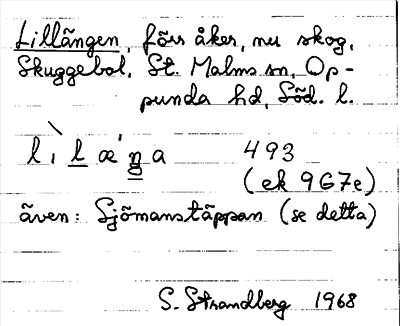 Lillängen, förr åker, nu skog,
Skuggebol, St. Malms sn, Op-
punda hd, Söd. l.
lìlǽŋa 493
(ek 9G7e)
även: Sjömanstäppan (se detta)
S. Strandberg 1968